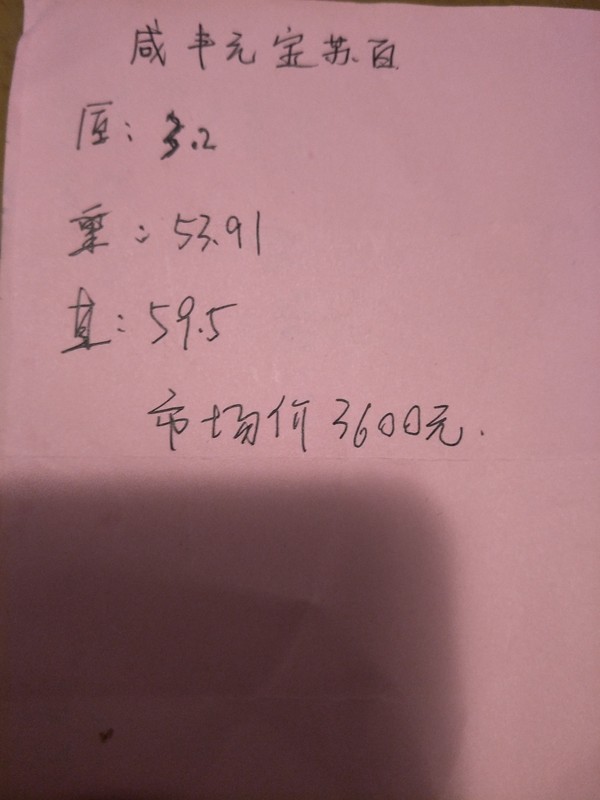 咸丰元宝苏百
厚：3.2
重：53.91
直：59.5
市场价3600元.